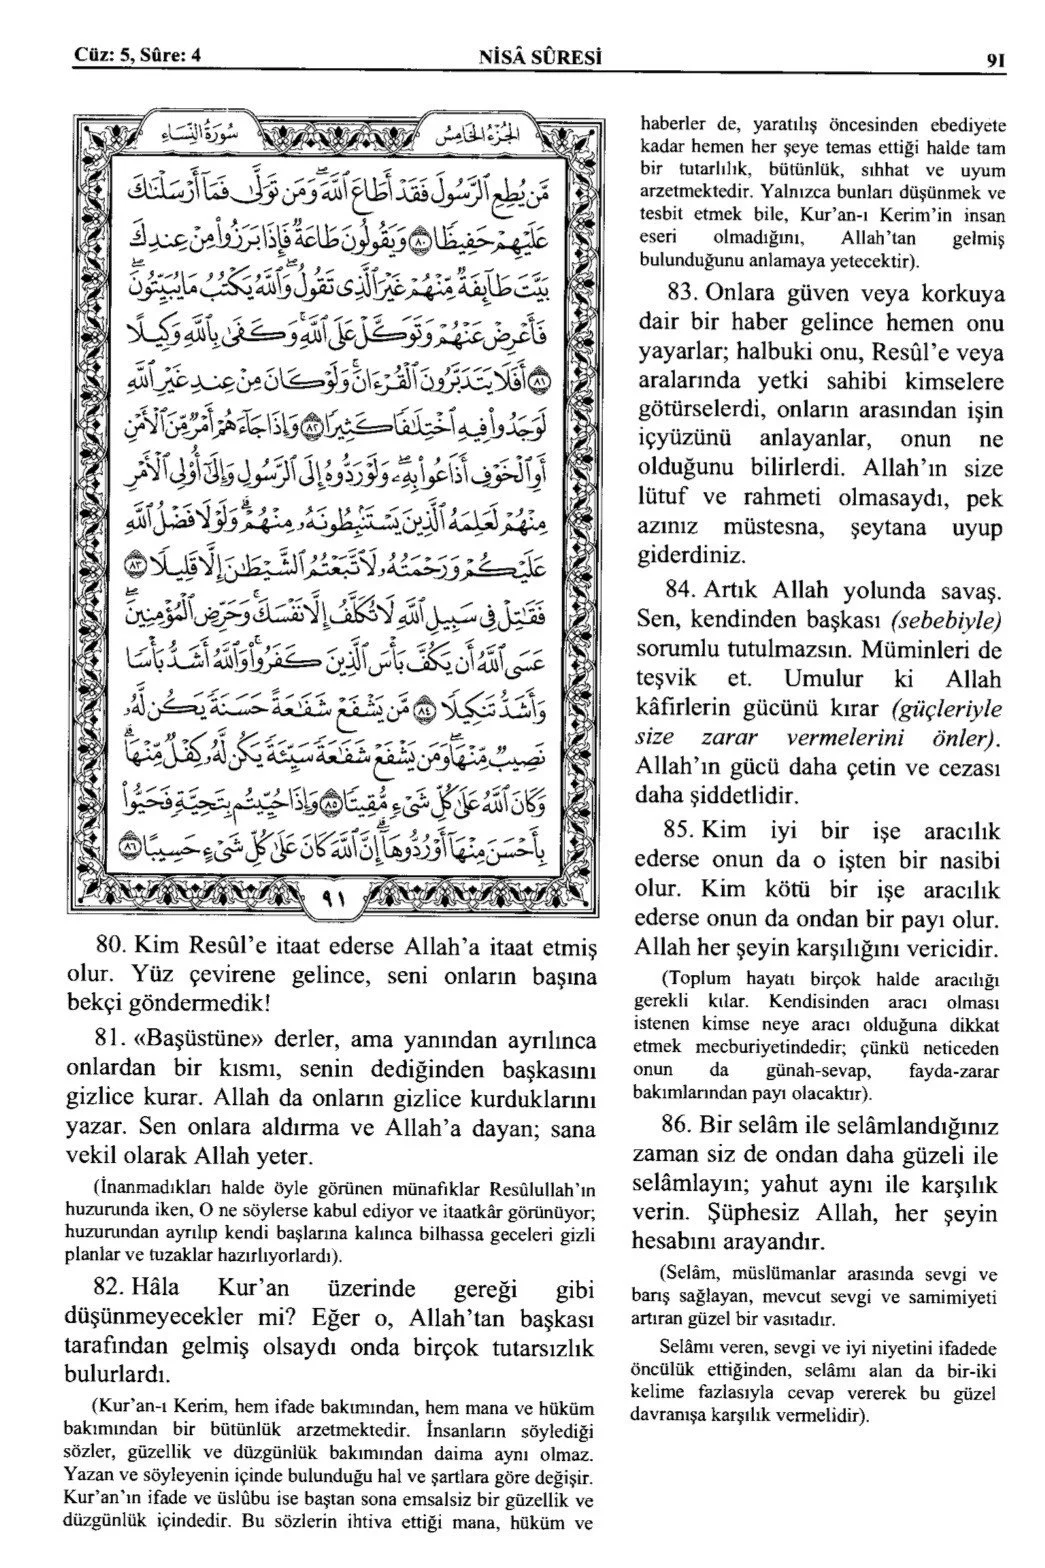 Cüz: 5, Sûre: 4
NİSÂ SÛRESİ
91
سُورَةُ النِّسَاءِ
الجُزْءُ الْخَامِسُ
مَّن يُطِعِ ٱلرَّسُولَ فَقَدْ أَطَاعَ ٱللَّهَ وَمَن تَوَلَّىٰ فَمَآ أَرْسَلْنَـٰكَ
عَلَيْهِمْ حَفِيظًا ۝٨٠ وَيَقُولُونَ طَاعَةٌ فَإِذَا بَرَزُوا۟ مِنْ عِندِكَ
بَيَّتَ طَآئِفَةٌ مِّنْهُمْ غَيْرَ ٱلَّذِى تَقُولُ وَٱللَّهُ يَكْتُبُ مَا يُبَيِّتُونَ
فَأَعْرِضْ عَنْهُمْ وَتَوَكَّلْ عَلَى ٱللَّهِ وَكَفَىٰ بِٱللَّهِ وَكِيلًا
۝٨١ أَفَلَا يَتَدَبَّرُونَ ٱلْقُرْءَانَ وَلَوْ كَانَ مِنْ عِندِ غَيْرِ ٱللَّهِ
لَوَجَدُوا۟ فِيهِ ٱخْتِلَـٰفًا كَثِيرًا ۝٨٢ وَإِذَا جَآءَهُمْ أَمْرٌ مِّنَ ٱلْأَمْنِ
أَوِ ٱلْخَوْفِ أَذَاعُوا۟ بِهِۦ وَلَوْ رَدُّوهُ إِلَى ٱلرَّسُولِ وَإِلَىٰٓ أُو۟لِى ٱلْأَمْرِ
مِنْهُمْ لَعَلِمَهُ ٱلَّذِينَ يَسْتَنۢبِطُونَهُۥ مِنْهُمْ وَلَوْلَا فَضْلُ ٱللَّهِ
عَلَيْكُمْ وَرَحْمَتُهُۥ لَٱتَّبَعْتُمُ ٱلشَّيْطَـٰنَ إِلَّا قَلِيلًا ۝٨٣
فَقَـٰتِلْ فِى سَبِيلِ ٱللَّهِ لَا تُكَلَّفُ إِلَّا نَفْسَكَ وَحَرِّضِ ٱلْمُؤْمِنِينَ
عَسَى ٱللَّهُ أَن يَكُفَّ بَأْسَ ٱلَّذِينَ كَفَرُوا۟ وَٱللَّهُ أَشَدُّ بَأْسًا
وَأَشَدُّ تَنكِيلًا ۝٨٤ مَّن يَشْفَعْ شَفَـٰعَةً حَسَنَةً يَكُن لَّهُۥ
نَصِيبٌ مِّنْهَا وَمَن يَشْفَعْ شَفَـٰعَةً سَيِّئَةً يَكُن لَّهُۥ كِفْلٌ مِّنْهَا
وَكَانَ ٱللَّهُ عَلَىٰ كُلِّ شَىْءٍ مُّقِيتًا ۝٨٥ وَإِذَا حُيِّيتُم بِتَحِيَّةٍ فَحَيُّوا۟
بِأَحْسَنَ مِنْهَآ أَوْ رُدُّوهَآ إِنَّ ٱللَّهَ كَانَ عَلَىٰ كُلِّ شَىْءٍ حَسِيبًا ۝٨٦
٩١
80. Kim Resûl'e itaat ederse Allah'a itaat etmiş
olur. Yüz çevirene gelince, seni onların başına
bekçi göndermedik!
81. «Başüstüne» derler, ama yanından ayrılınca
onlardan bir kısmı, senin dediğinden başkasını
gizlice kurar. Allah da onların gizlice kurduklarını
yazar. Sen onlara aldırma ve Allah'a dayan; sana
vekil olarak Allah yeter.
(İnanmadıkları halde öyle görünen münafıklar Resûlullah'ın
huzurunda iken, O ne söylerse kabul ediyor ve itaatkâr görünüyor;
huzurundan ayrılıp kendi başlarına kalınca bilhassa geceleri gizli
planlar ve tuzaklar hazırlıyorlardı).
82. Hâla Kur'an üzerinde gereği gibi
düşünmeyecekler mi? Eğer o, Allah'tan başkası
tarafından gelmiş olsaydı onda birçok tutarsızlık
bulurlardı.
(Kur'an-ı Kerim, hem ifade bakımından, hem mana ve hüküm
bakımından bir bütünlük arzetmektedir. İnsanların söylediği
sözler, güzellik ve düzgünlük bakımından daima aynı olmaz.
Yazan ve söyleyenin içinde bulunduğu hal ve şartlara göre değişir.
Kur'an'ın ifade ve üslûbu ise baştan sona emsalsiz bir güzellik ve
düzgünlük içindedir. Bu sözlerin ihtiva ettiği mana, hüküm ve
haberler de, yaratılış öncesinden ebediyete
kadar hemen her şeye temas ettiği halde tam
bir tutarlılık, bütünlük, sıhhat ve uyum
arzetmektedir. Yalnızca bunları düşünmek ve
tesbit etmek bile, Kur'an-ı Kerim'in insan
eseri olmadığını, Allah'tan gelmiş
bulunduğunu anlamaya yetecektir).
83. Onlara güven veya korkuya
dair bir haber gelince hemen onu
yayarlar; halbuki onu, Resûl'e veya
aralarında yetki sahibi kimselere
götürselerdi, onların arasından işin
içyüzünü anlayanlar, onun ne
olduğunu bilirlerdi. Allah'ın size
lütuf ve rahmeti olmasaydı, pek
azınız müstesna, şeytana uyup
giderdiniz.
84. Artık Allah yolunda savaş.
Sen, kendinden başkası (sebebiyle)
sorumlu tutulmazsın. Müminleri de
teşvik et. Umulur ki Allah
kâfirlerin gücünü kırar (güçleriyle
size zarar vermelerini önler).
Allah'ın gücü daha çetin ve cezası
daha şiddetlidir.
85. Kim iyi bir işe aracılık
ederse onun da o işten bir nasibi
olur. Kim kötü bir işe aracılık
ederse onun da ondan bir payı olur.
Allah her şeyin karşılığını vericidir.
(Toplum hayatı birçok halde aracılığı
gerekli kılar. Kendisinden aracı olması
istenen kimse neye aracı olduğuna dikkat
etmek mecburiyetindedir; çünkü neticeden
onun da günah-sevap, fayda-zarar
bakımlarından payı olacaktır).
86. Bir selâm ile selâmlandığınız
zaman siz de ondan daha güzeli ile
selâmlayın; yahut aynı ile karşılık
verin. Şüphesiz Allah, her şeyin
hesabını arayandır.
(Selâm, müslümanlar arasında sevgi ve
barış sağlayan, mevcut sevgi ve samimiyeti
artıran güzel bir vasıtadır.
Selâmı veren, sevgi ve iyi niyetini ifadede
öncülük ettiğinden, selâmı alan da bir-iki
kelime fazlasıyla cevap vererek bu güzel
davranışa karşılık vermelidir).